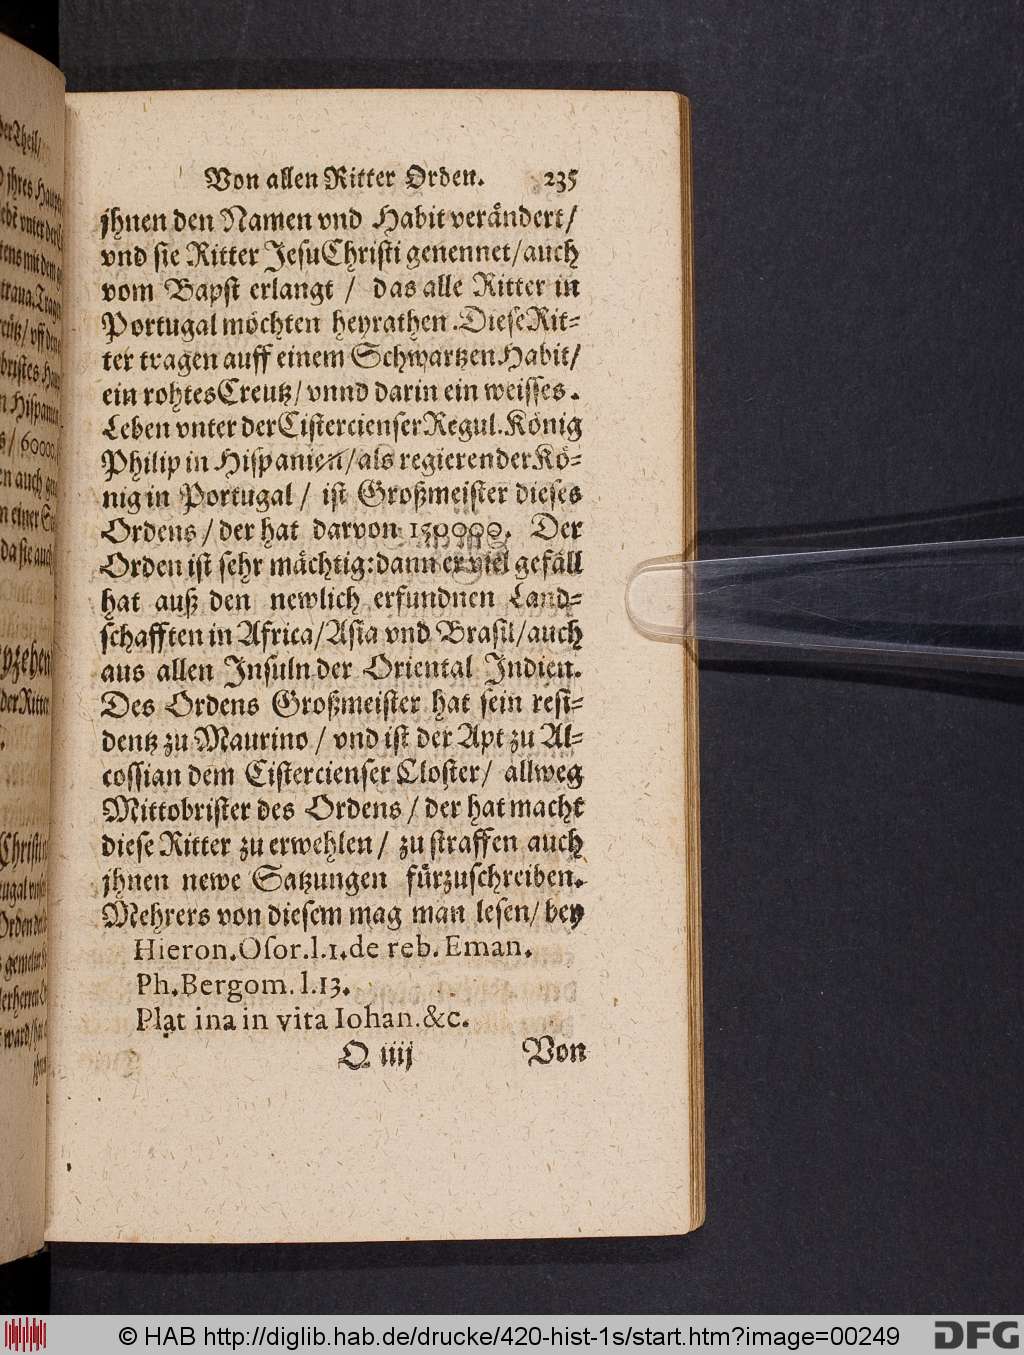 Von allen Ritter Orden. 235
jhnen den Namen vnd Habit verändert/
vnd sie Ritter JesuChristi genennet/auch
vom Bapst erlangt / das alle Ritter in
Portugal möchten heyrathen. Diese Rit-
ter tragen auff einem Schwartzen Habit/
ein rohtes Creutz/ vnnd darin ein weisses.
Leben vnter der Cistercienser Regul. König
Philip in Hispanien/als regierender Kö-
nig in Portugal / ist Großmeister dieses
Ordens / der hat darvon 150000. Der
Orden ist sehr mächtig: dann er viel gefäll
hat auß den newlich erfundnen Land-
schafften in Africa/Asia vnd Brasil/auch
aus allen Insuln der Oriental Indien.
Des Ordens Großmeister hat sein resi-
dentz zu Maurino / vnd ist der Apt zu Al-
cossian dem Cistercienser Closter/ allweg
Mittobrister des Ordens / der hat macht
diese Ritter zu erwehlen / zu straffen auch
jhnen newe Satzungen fürzuschreiben.
Mehrers von diesem mag man lesen/ bey
Hieron. Osor. l. 1. de reb. Eman.
Ph. Bergom. l. 13.
Plat ina in vita Iohan. &c.
Q iiij Von
© HAB http://diglib.hab.de/drucke/420-hist-1s/start.htm?image=00249
DFG